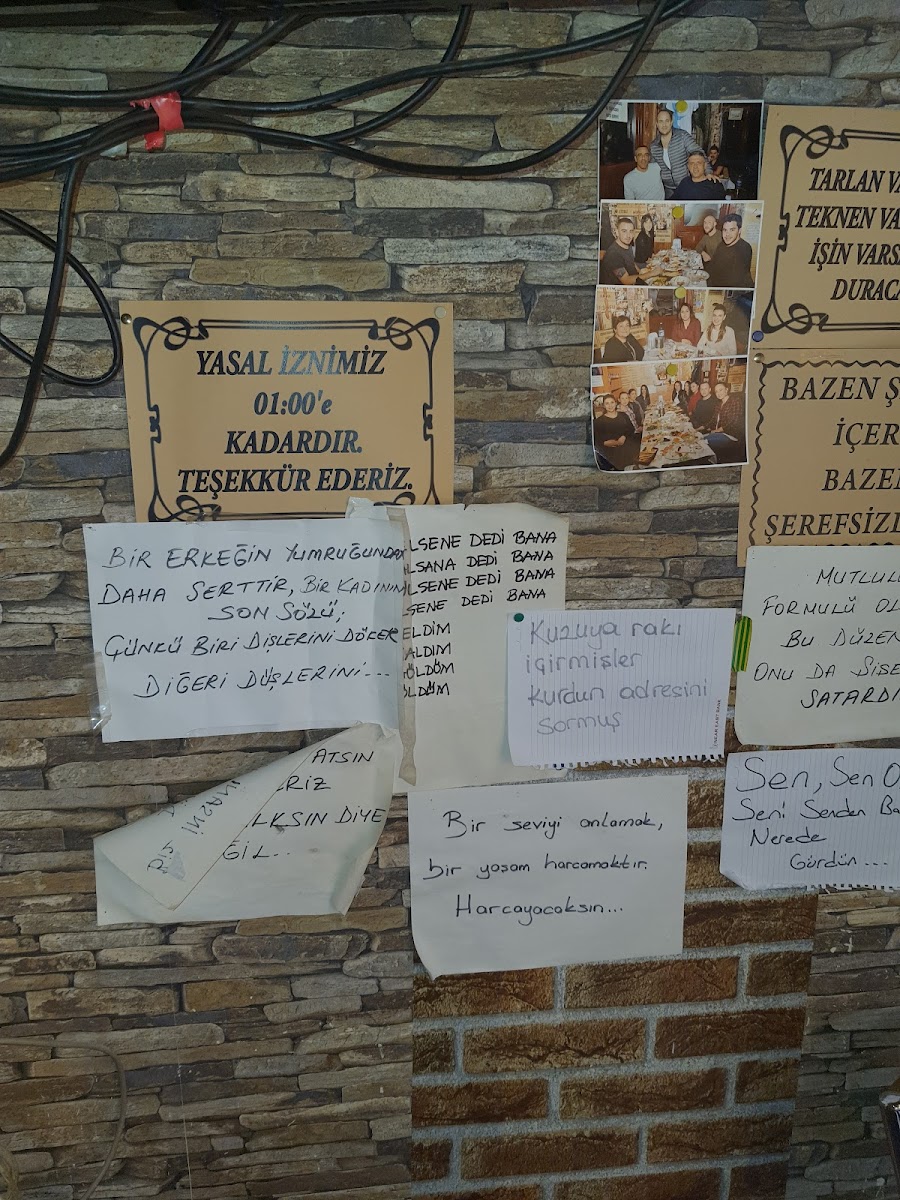 YASAL İZNİMİZ
01:00'e
KADARDIR.
TEŞEKKÜR EDERİZ.
TARLAN
TEKNEN
İŞİN
BAZEN
BAZEN
BİR ERKEĞİN YUMRUĞUNDAN
DAHA SERTTİR, BİR KADININ
SON SÖZÜ;
ÇÜNKÜ BİRİ DİŞLERİNİ DÖKER
DİĞERİ DÜŞLERİNİ...
LSENE DEDİ BANA
LSANA DEDİ BANA
LSENE DEDİ BANA
SENE DEDİ BANA
ELDİM
ALDIM
ÖLDÜM
Kuzuya rakı
içirmişler
kurdun adresini
sormuş
MUTLULU
FORMULÜ OL
BU DÜZEN
ONU DA ŞİŞE
SATARDI
ATSIN
ERİZ
LKSIN DİYE
ĞİL...
Bir seviyi anlamak,
bir yaşam harcamaktır.
Harcayacaksın...
Sen, Sen O
Seni Senden Ba
Nerede
Gördün...